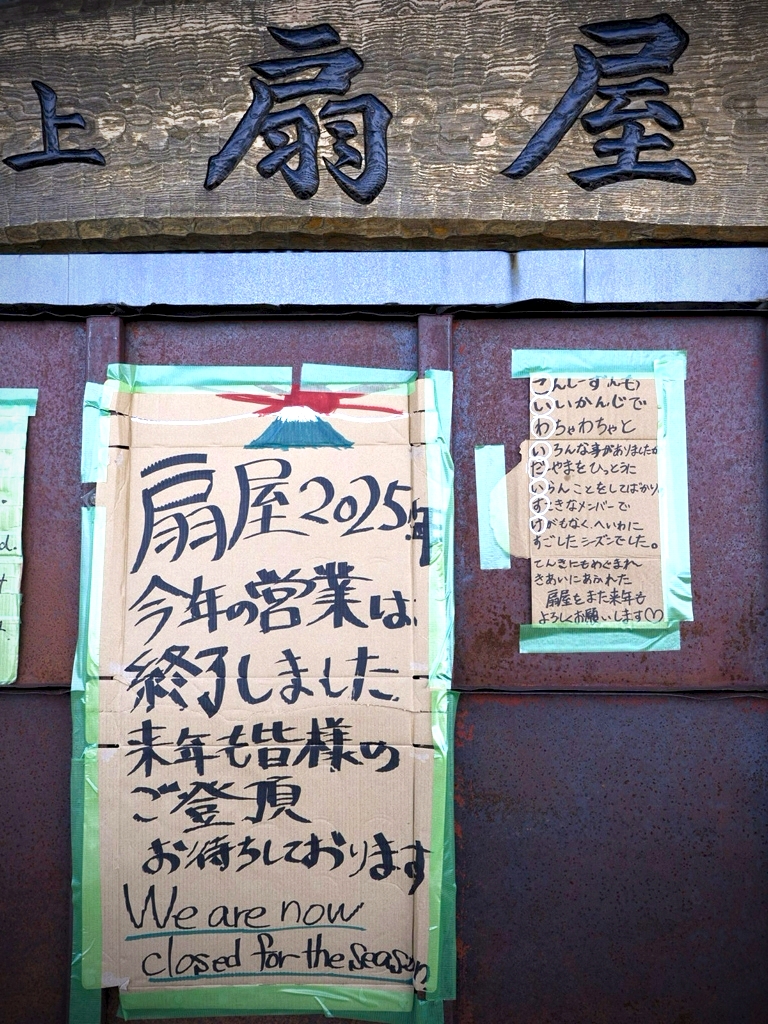 上 扇 屋
d.
扇屋2025年
今年の営業は
終了しました
来年も皆様の
ご登頂
お待ちしております
We are now
closed for the season
こんしーずんも
いいかんじで
わちゃわちゃと
いろんな事がありましたが
だやまをひっとうに
いらんことをしてばかり
すてきなメンバーで
けがもなく、へいわに
すごしたシーズンでした。
てんきにもめぐまれ
きあいにあふれた
扇屋をまた来年も
よろしくお願いします♡